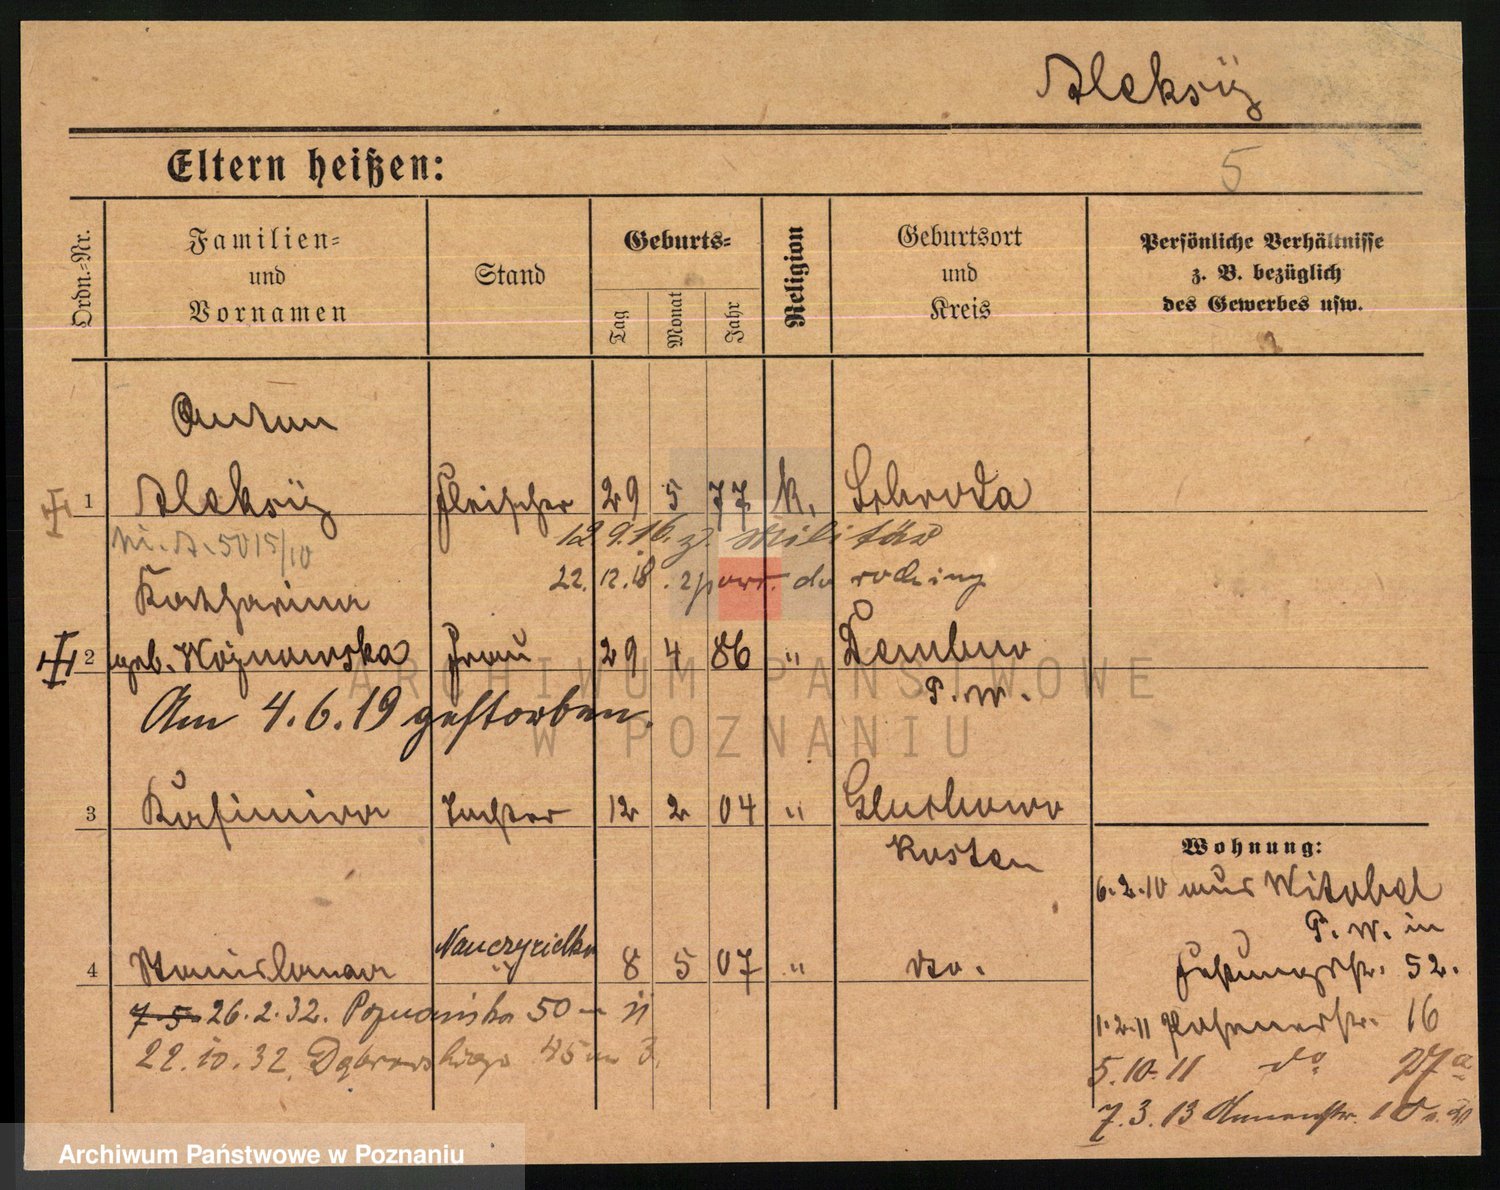 Aleksÿ
Eltern heißen:
5
Ordn.-Nr.
Familien-
und
Vornamen
Stand
Geburts-
Tag
Monat
Jahr
Religion
Geburtsort
und
Kreis
Persönliche Verhältnisse
z. B. bezüglich
des Gewerbes usw.
Anton
1 Aleksÿ Fleischer 29 5 77 k. Schroda
5015/10 12 9.16. z. Militär
22.12.18. do rodziny
Katharina
2 geb. Woznowska Frau 29 4 86 " Dembno
P. W.
Am 4.6.19 gestorben.
3 Kasimira Tochter 12 2 04 " Gluchowo
Kosten
Wohnung:
6.2.10 aus Witobel
P. W. in
Nauczycielka
4 Stanislawa " 8 5 07 " dto.
Festungsstr. 52.
7.5. 26.2.32. Poznańska 50 m 11
1.2.11 Posenerstr. 16
22.10.32. Dąbrowskiego 45 m 3.
5.10.11 do 27a
7.3.13
ARCHIWUM PAŃSTWOWE
W POZNANIU
Archiwum Państwowe w Poznaniu